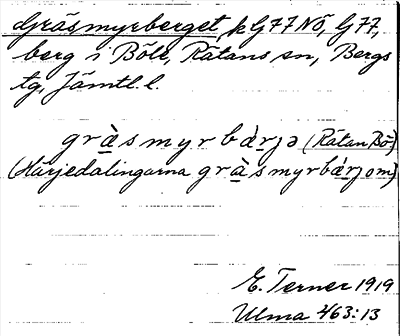 Gräsmyrberget, k G77NÖ, G77,
berg i Böle, Rätans sn, Bergs
tg, Jämtl. l.
gràsmyrbàrjə (Rätan Bö)
(Härjedalingarna gràsmyrbárjom)
E. Terner 1919
Ulma 763:13